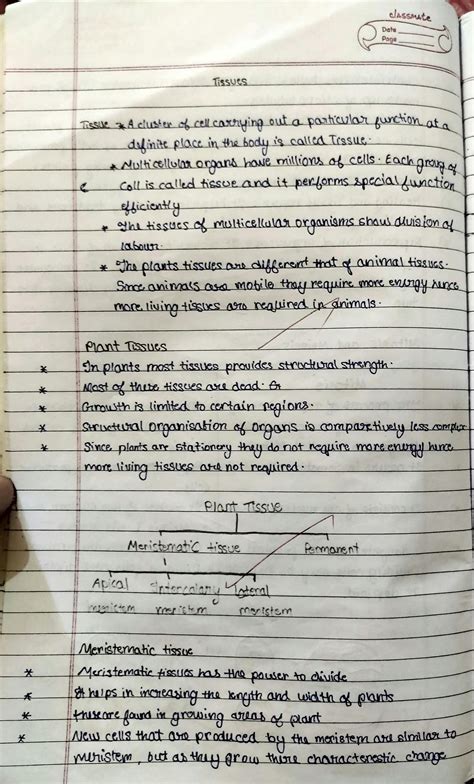 classmate
Date
Page
Tissues
Tissue * A cluster of cell carrying out a particular function at a
definite place in the body is called Tissue.
* Multicellular organs have millions of cells. Each group of
cell is called tissue and it performs special function
efficiently
* The tissues of multicellular organisms show division of
labour.
* The plants tissues are different that of animal tissues.
Since animals are mobile they require more energy hence
more living tissues are required in animals.
Plant Tissues
* In plants most tissues provides structural strength.
* Most of these tissues are dead.
* Growth is limited to certain regions.
* Structural organisation of organs is comparetively less complex
* Since plants are stationery they do not require more energy hence
more living tissues are not required.
Plant Tissue
Meristematic tissue Permanent
Apical Intercalary lateral
meristem meristem meristem
Meristematic tissue
* Meristematic tissues has the power to divide
* It helps in increasing the length and width of plants
* these are found in growing areas of plant
* New cells that are produced by the meristem are similar to
meristem, but as they grow there characterestic change